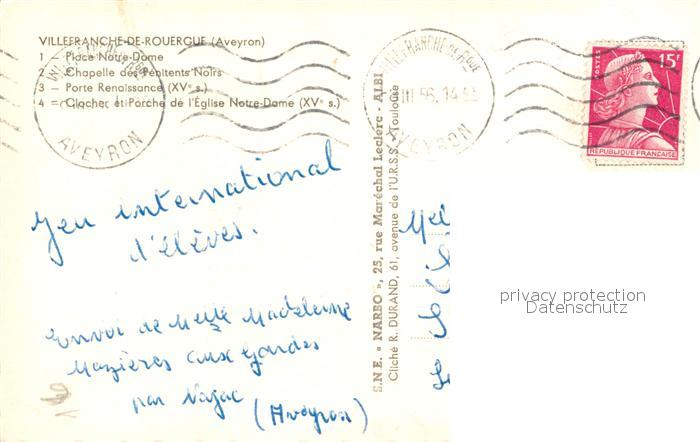 VILLEFRANCHE-DE-ROUERGUE (Aveyron)
1 - Place Notre-Dame
2 - Chapelle des Pénitents Noirs
3 - Porte Renaissance (XVe s.)
4 - Clocher et Porche de l'Église Notre-Dame (XVe s.)
AVEYRON
VILLEFRANCHE DE ROUE
III 56. 14
AVEYRON
POSTES
15F
REPUBLIQUE FRANÇAISE
Jeu international
d'élèves.
Envoi de Melle Madeleine
Mazières aux Gendes
par Najac
(Aveyron)
S.N.E. « NARBO », 25, rue Maréchal Leclerc - ALBI
Cliché R. DURAND, 61, avenue de l'U.R.S.S. - Toulouse
Mel
privacy protection
Datenschutz